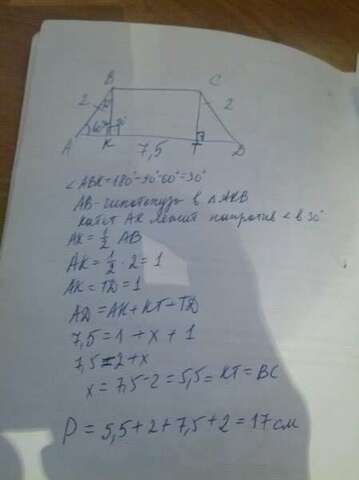 B C
2 2
60° 90°
A K 7,5 T D
∠ABK=180°-90°-60°=30°
AB-гипотенуза в △AKB
катет AK лежит напротив ∠ в 30°
AK = 1/2 AB
AK = 1/2 · 2 = 1
AK = TD = 1
AD = AK + KT + TD
7,5 = 1 + x + 1
7,5 = 2 + x
x = 7,5 - 2 = 5,5 = KT = BC
P = 5,5 + 2 + 7,5 + 2 = 17 см